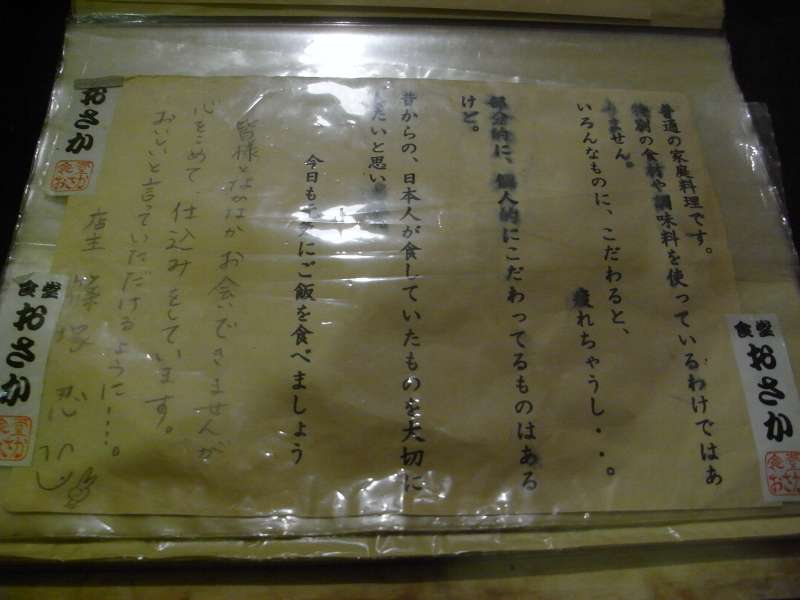 普通の家庭料理です。
特別の食材や調味料を使っているわけではあ
りません。
いろんなものに、こだわると、
疲れちゃうし・・・。
部分的に、個人的にこだわってるものはある
けど。
昔からの、日本人が食していたものを大切に
したいと思い
今日も
にご飯を食べましょう
皆様となかなかお会いできませんが
心をこめて、仕込みをしています。
おいしいと言っていただけるように……。
店主 篠塚
おさか
食堂
おさか
食堂
おさか
食堂
おさか
食堂
おさか
食堂
おさか